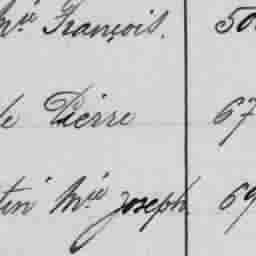 Mie François. 50
Pierre 67
tin Mie Joseph 69